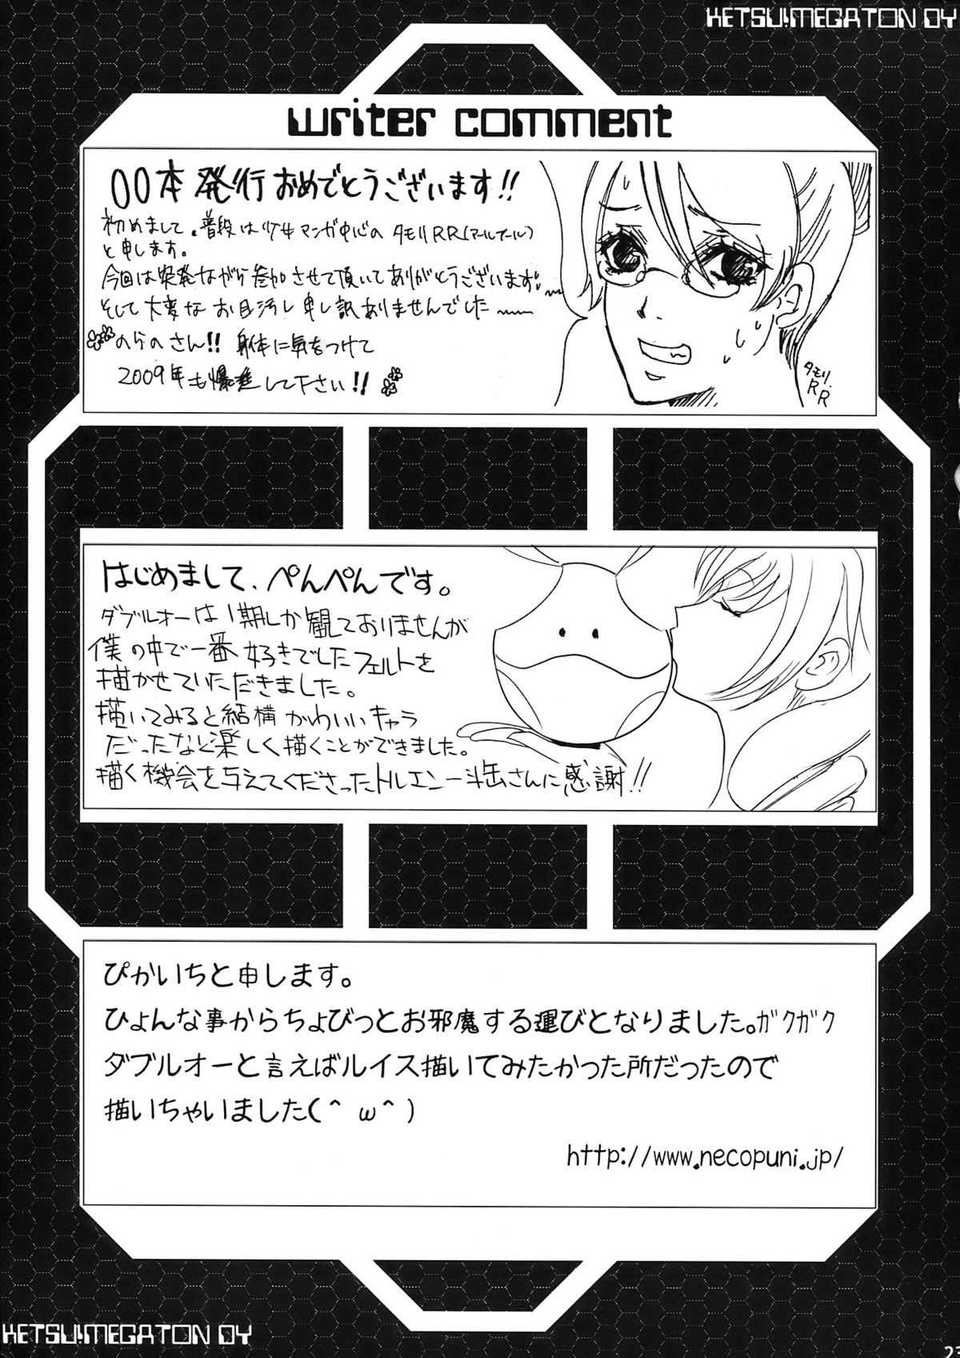 KETSU!MEGATON OY
writer comment
00本 発行 おめでとうございます!!
初めまして。普段は少女マンガ中心の タモリRR(アールアール)
と申します。
今回は突発ながら参加させて頂いてありがとうございます。
そして大変なお目汚し申し訳ありませんでした
のらのさん!! 身体に気をつけて
2009年も爆進して下さい!!
タモリ.
RR
はじめまして、ぺんぺんです。
ダブルオーは1期しか観ておりませんが
僕の中で一番好きでしたフェルトを
描かせていただきました。
描いてみると結構かわいいキャラ
だったなど楽しく描くことができました。
描く機会を与えてくださったトルエン一斗缶さんに感謝!!
ぴかいちと申します。
ひょんな事からちょびっとお邪魔する運びとなりました。ガクガク
ダブルオーと言えばルイス描いてみたかった所だったので
描いちゃいました(^ ω^)
http://www.necopuni.jp/
KETSU!MEGATON OY
23